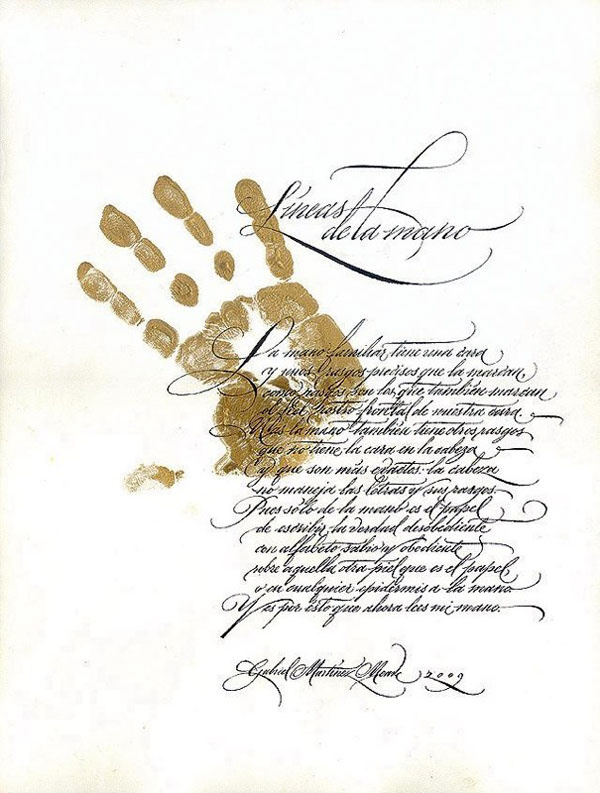 Líneas
de la mano
La mano familiar tiene una cara
y unos rasgos precisos que la marcan
como rasgos son los que también marcan
el fiel rostro frontal de nuestra cara.
Mas la mano también tiene otros rasgos
que no tiene la cara en la cabeza
y que son más exactos: la cabeza
no maneja las letras y sus rasgos.
Pues sólo de la mano es el papel
de escribir la verdad desobediente
con alfabeto sabio y obediente
sobre aquella otra piel que es el papel
o en cualquier epidermis a la mano.
Y es por esto que ahora lees mi mano.
Gabriel Martínez Meave 2009